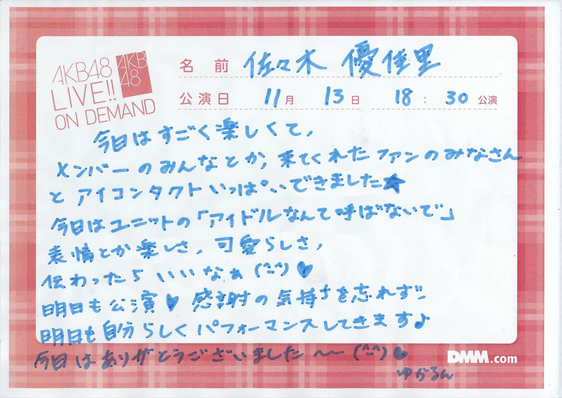 AKB48
LIVE!!
ON DEMAND
AKB
48
名前 佐々木 優佳里
公演日 11月 13日 18:30公演
今日はすごく楽しくて、
メンバーのみんなとか、来てくれたファンのみなさん
とアイコンタクトいっぱいできました★
今日はユニットの「アイドルなんて呼ばないで」
表情とか楽しさ、可愛らしさ、
伝わったらいいなぁ(^-^)♥
明日も公演♥感謝の気持ちを忘れず!!
明日も自分らしくパフォーマンスしてきます♪
今日はありがとうございました〜〜(^-^)♥
ゆかるん
DMM.com